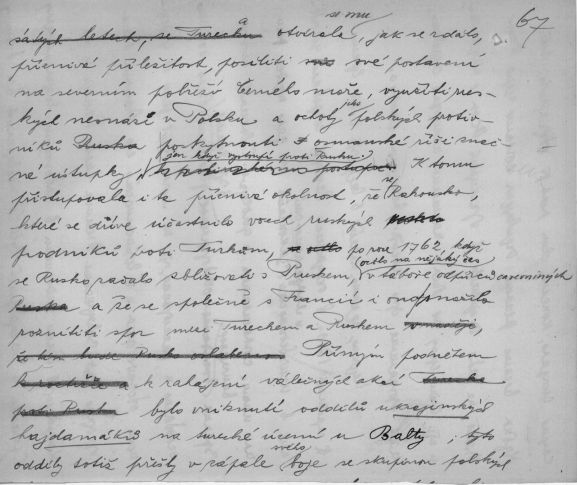 67
šátých letech, se Turecku otvírala, jak se zdálo,
se mu
příznivá příležitost, posíliti své postavení
na severním pobřeží Černého moře, využíti rus-
kých nesnází v Polsku a ochoty jeho polských protiv-
níků Ruska poskytnouti osmanské říši znač-
né ústupky, jen když vystoupí proti Rusku. K tomu
přistupovala i ta příznivá okolnost, že se Rakousko,
které se dříve účastnilo všech ruských
podniků proti Turkům, po roce 1762, když
se Rusko začalo sbližovati s Pruskem, ocitlo na nějaký čas v táboře odpůrců carevniných
a že se společně s Francií i ono snažilo
roznítiti spor mezi Tureckem a Ruskem
Přímým podnětem
k zahájení válečných akcí
proti Rusku bylo vniknutí oddílů ukrajinských
hajdamáků na turecké území u Balty; tyto
oddíly totiž přešly v zápale svého boje se skupinou polských